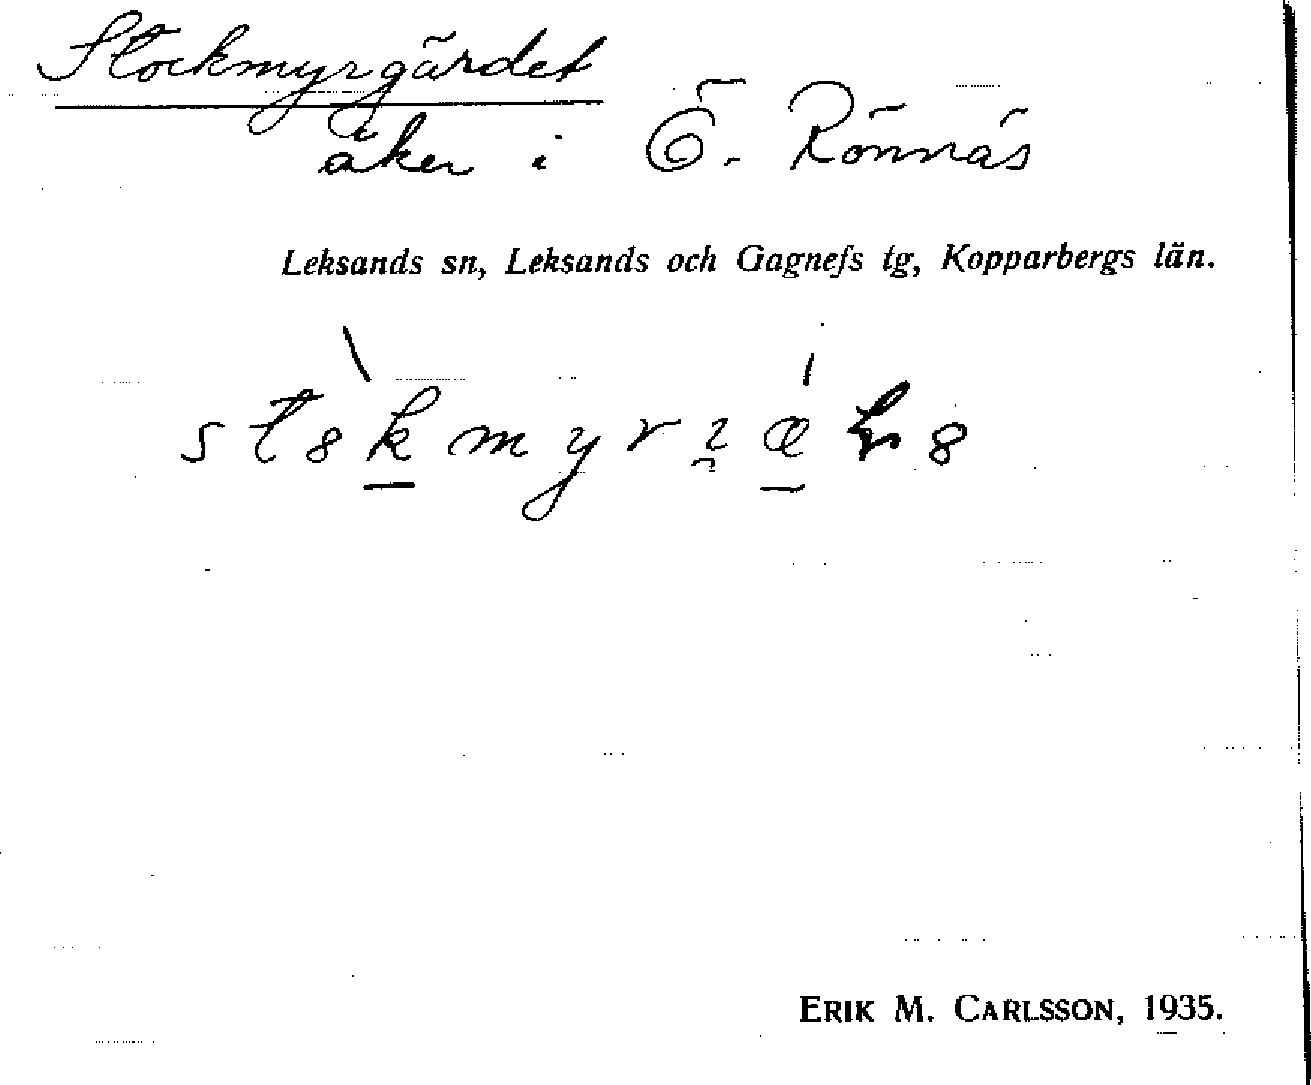 Stockmyrgärdet
åker i Ö. Rönnäs
Leksands sn, Leksands och Gagnefs tg, Kopparbergs län.
ERIK M. CARLSSON, 1935.